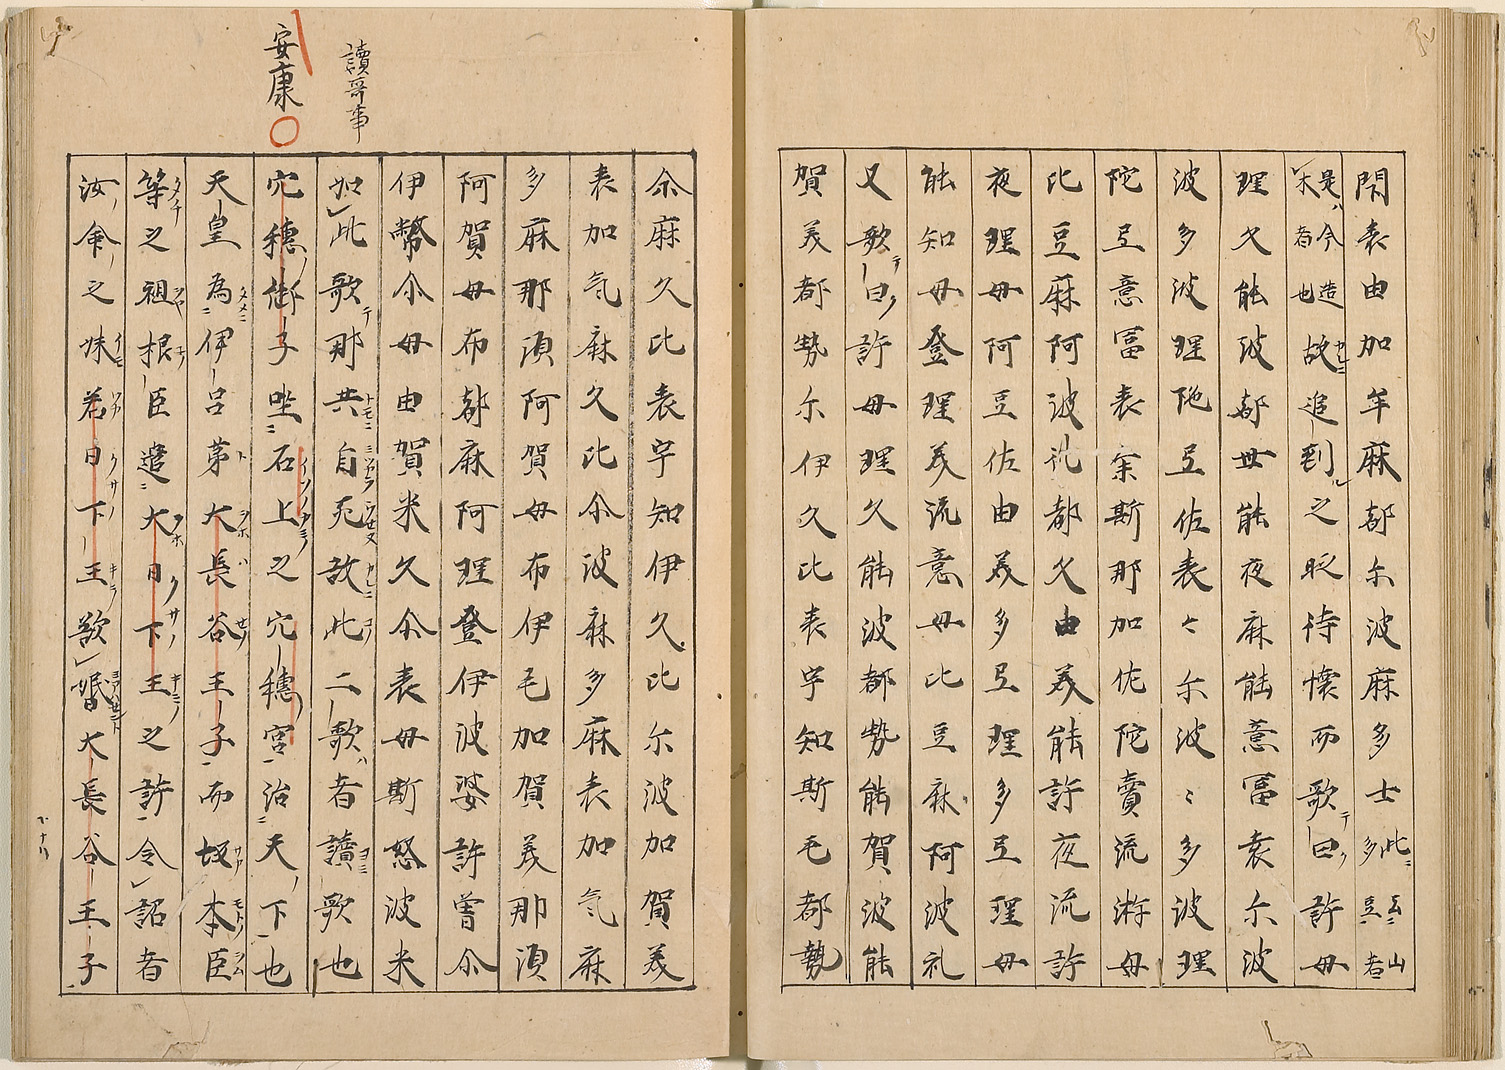 閇袁由加牟麻都尓波麻多士此云山多豆者
是今造木者也故追到之時待懐而歌曰許母
理久能波都世能夜麻能意冨袁尓波
波多波理陁弖佐袁々尓波々多波理
陀弖意冨袁余斯那加佐陀賣流淤母
比豆麻阿波礼都久由美能許夜流許
夜理母阿豆佐由美多弖理多弖理母
能知母登理美流意母比豆麻阿波礼
又歌曰許母理久能波都勢能賀波能
賀美都勢尓伊久比袁宇知斯毛都勢
尒麻久比袁宇知伊久比尓波加賀美
袁加氣麻久比尒波麻多麻袁加氣麻
多麻那湏阿賀母布伊毛加賀美那湏
阿賀母布都麻阿理登伊波婆許曽尒
伊幣尒母由賀米久尒袁母斯怒波米
讀哥事
如此歌那共自死故此二歌者讀歌也
安康
穴穗御子坐石上之穴穗宮治天下也
天皇為伊呂茅大長谷王子而坂本臣
等之祖根臣遣大日下王之許令詔者
汝命之妹若日下王欲婚大長谷王子